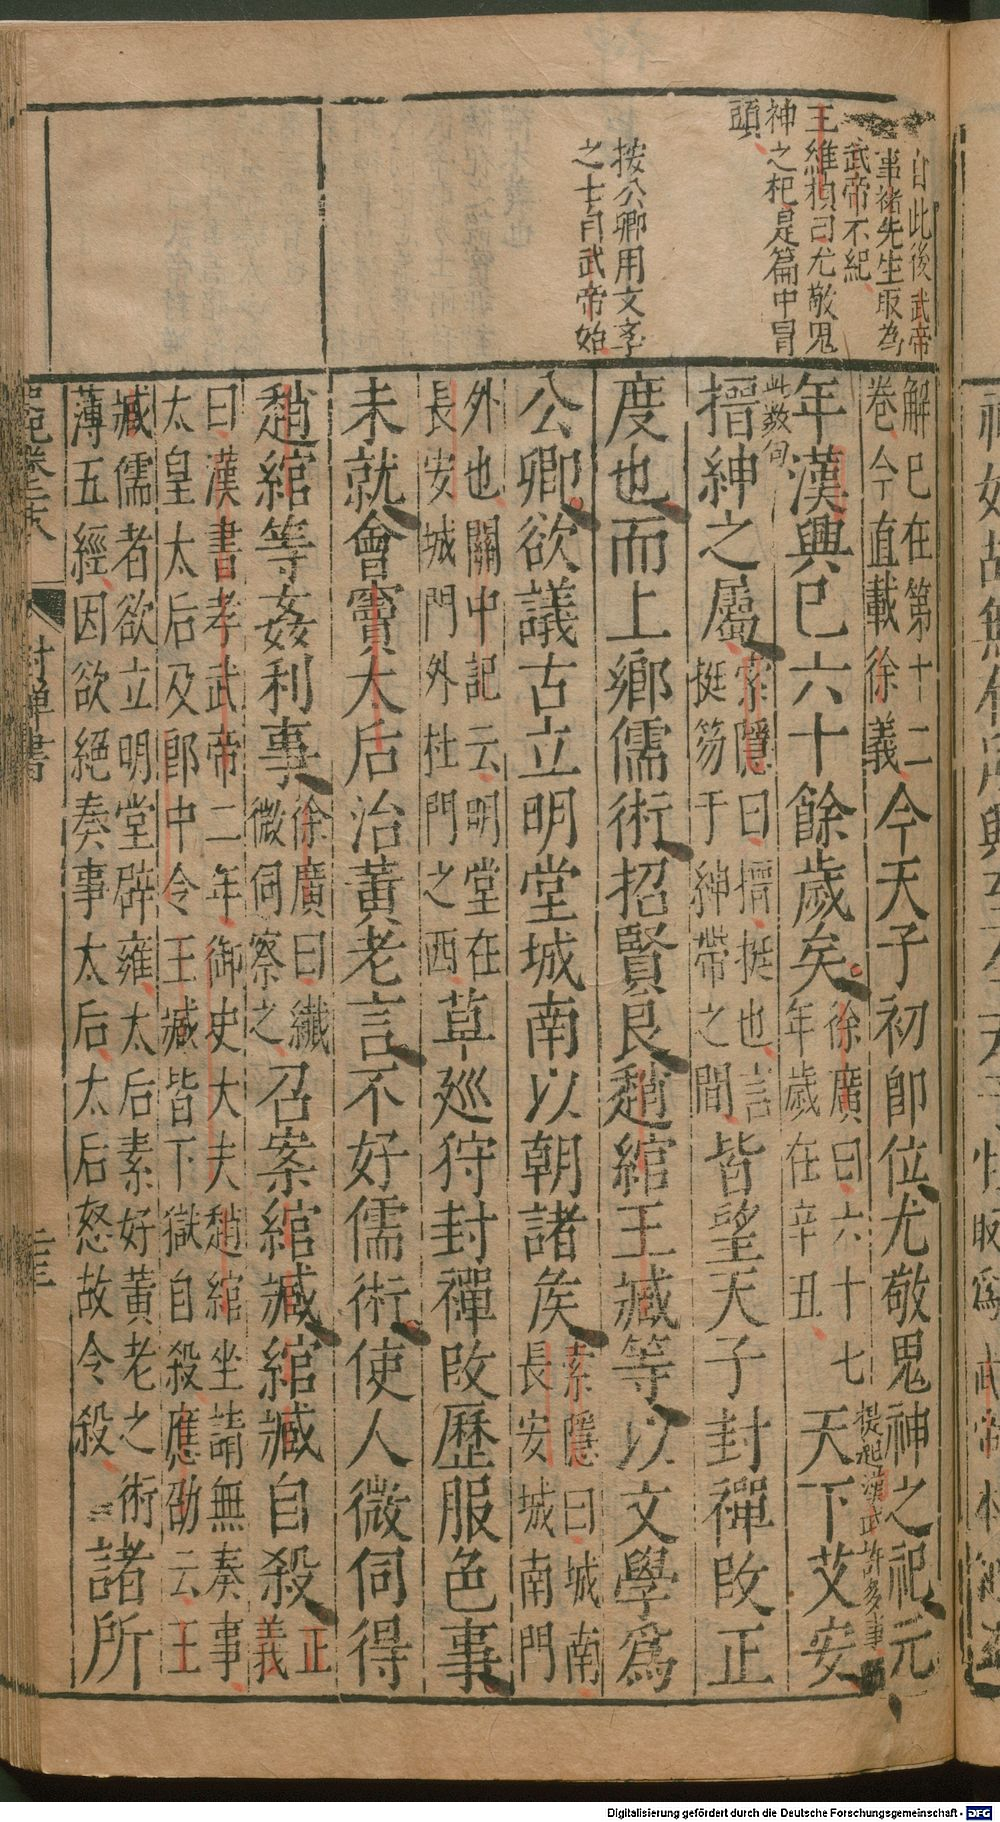 自此後武帝
事褚先生取為
武帝本紀
王維楨曰尤敬鬼
神之祀是篇中冒
頭
按公卿用文字
之士自武帝始
解已在第十二
卷今直載徐義
今天子初卽位尤敬鬼神之祀元
提起漢武許多事
年漢興已六十餘歲矣
徐廣曰六十七
年歲在辛丑
天下艾安
此數句
搢紳之屬
索隱曰搢挺也言
挺笏于紳帶之間
皆望天子封禪改正
度也而上鄉儒術招賢良趙綰王臧等以文學爲
公卿欲議古立明堂城南以朝諸侯
索隱曰城南
長安城南門
外也關中記云明堂在
長安城門外杜門之西
草巡狩封禪改歷服色事
未就會竇太后治黃老言不好儒術使人微伺得
趙綰等姦利事
徐廣曰纖
微伺察之
召案綰臧綰臧自殺
正
義
曰漢書孝武帝二年御史大夫趙綰坐請無奏事
太皇太后及郎中令王臧皆下獄自殺應劭云王
臧儒者欲立明堂辟雍太后素好黃老之術
薄五經因欲絕奏事太后太后怒故令殺
諸所
封禪書
Digitalisierung gefördert durch die Deutsche Forschungsgemeinschaft - DFG